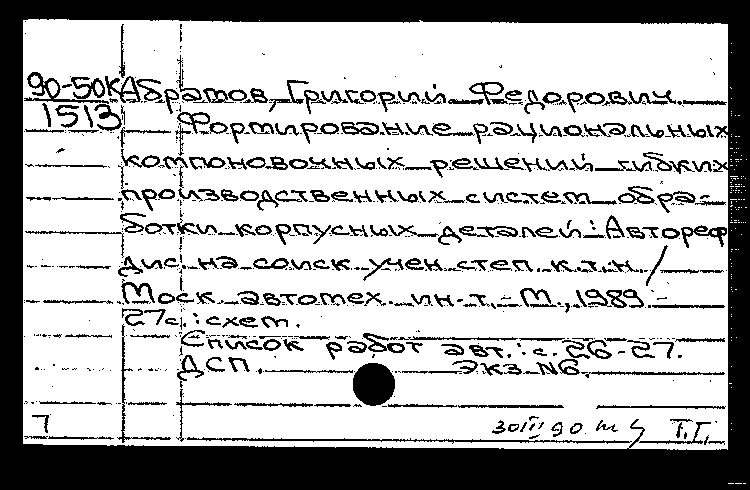 90-50к Абратов, Григорий Федорович
1513 Формирование рациональных
компоновочных решений гибких
производственных систем обра-
ботки корпусных деталей: Автореф
дис. на соиск учен степ. к.т.н. /
Моск автомех. ин-т. - М., 1989 -
27с.: схем.
Список работ авт.: с. 26-27.
ДСП. Экз N6.
7 30III 90 Т.Г.